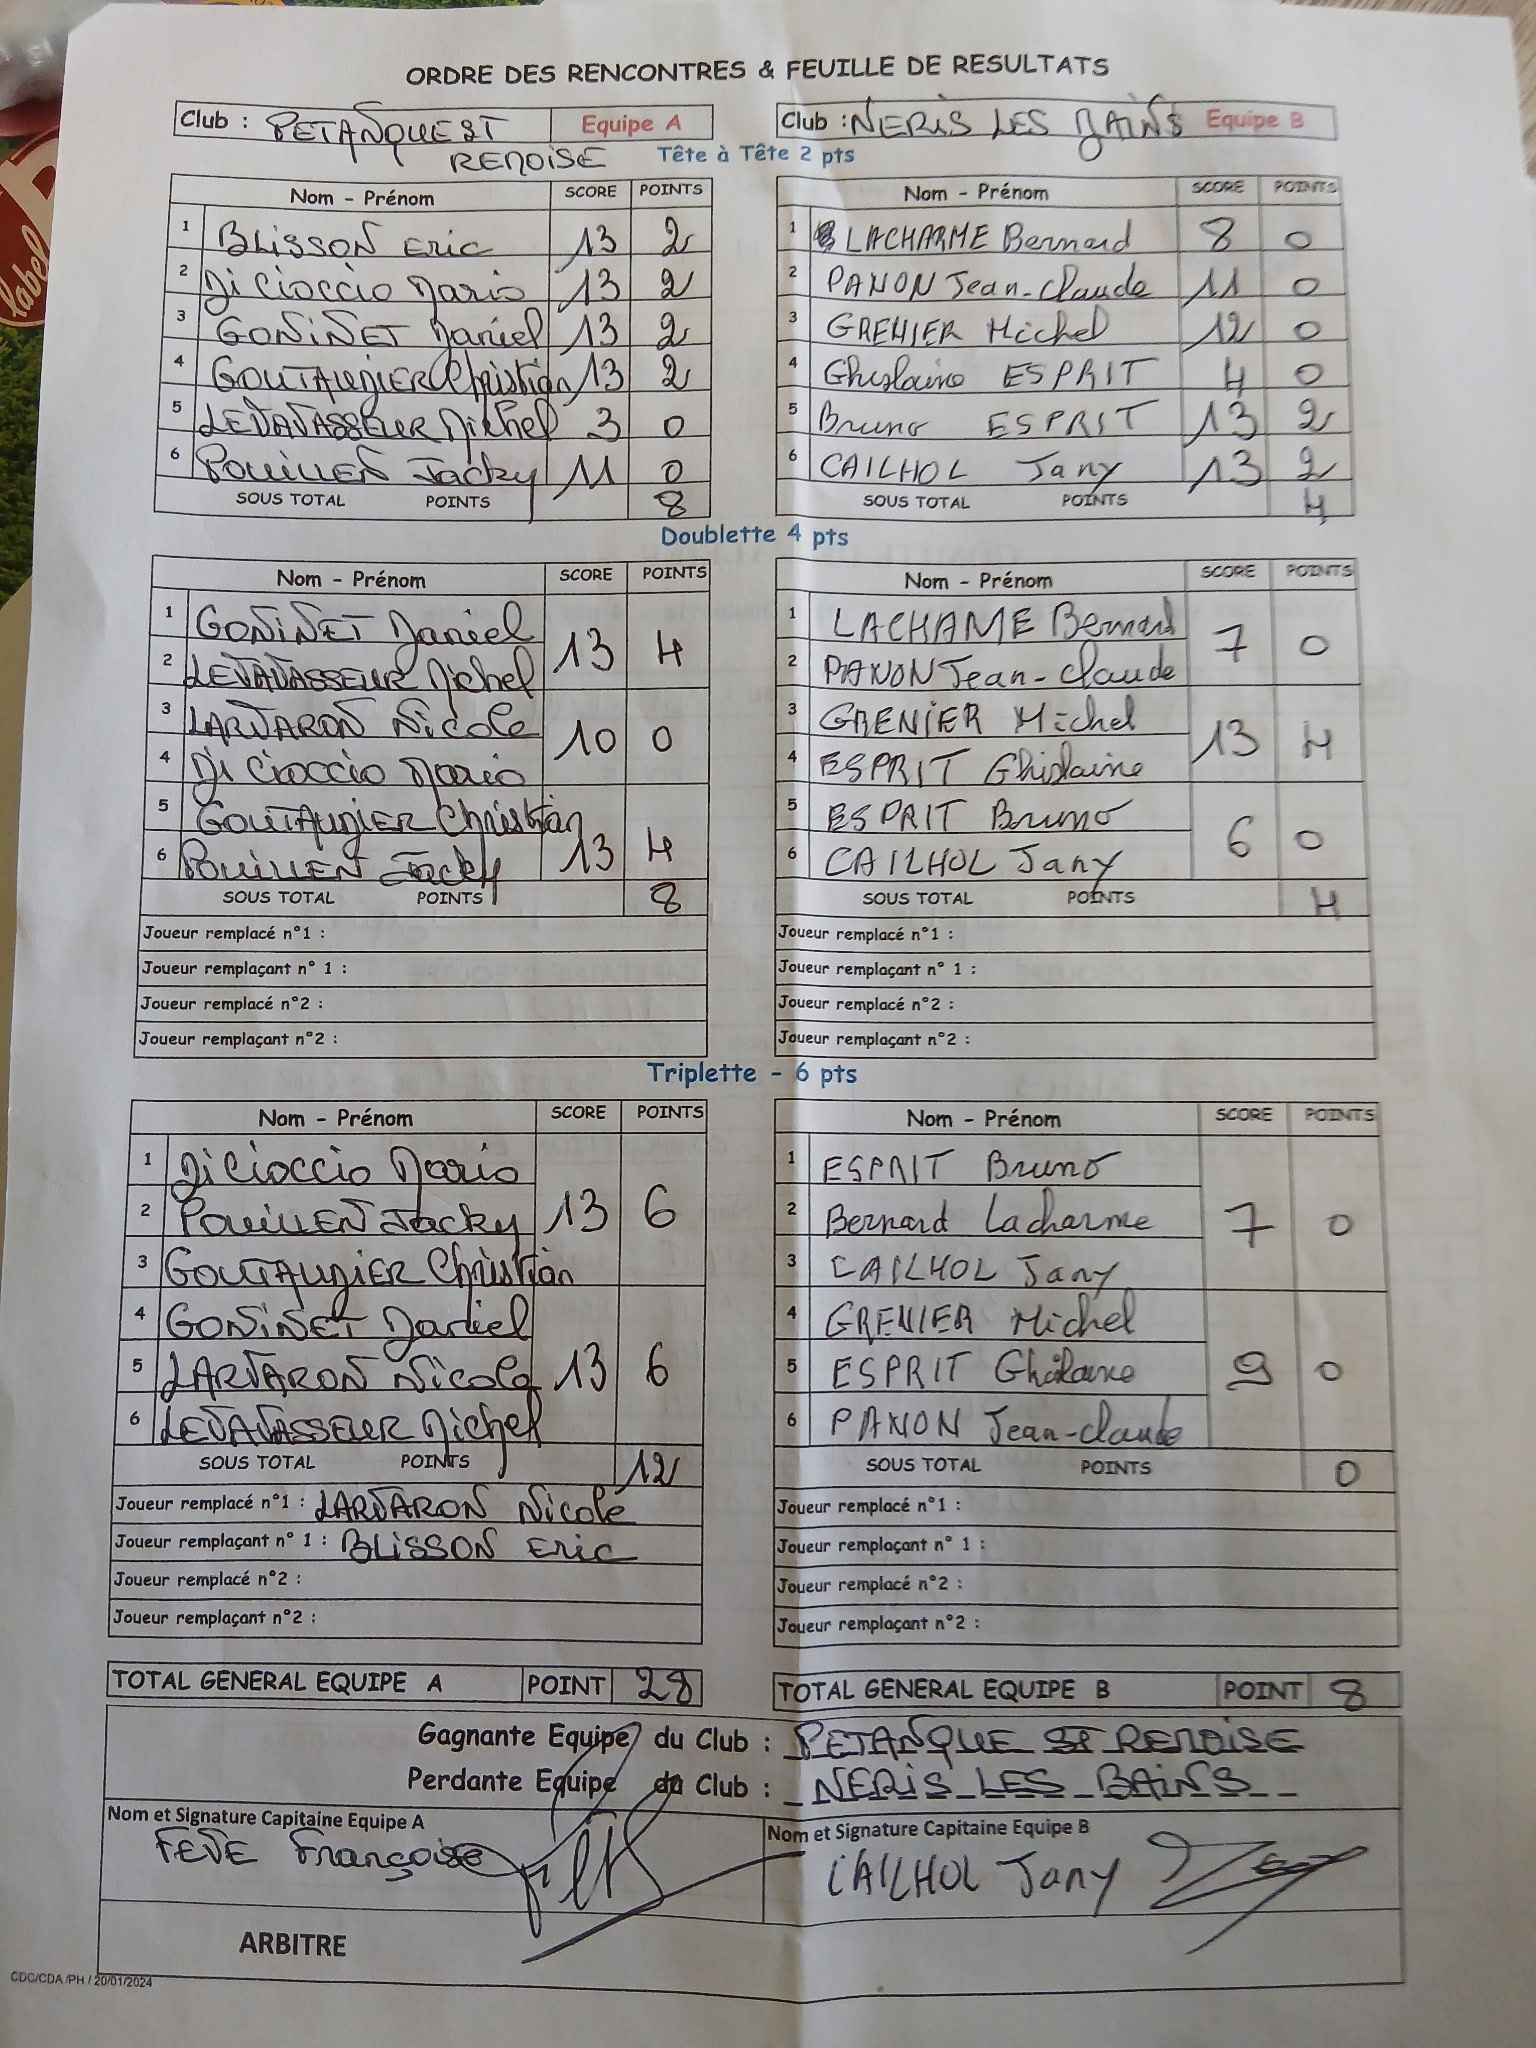 label
ORDRE DES RENCONTRES & FEUILLE DE RESULTATS
Club : PETANQUE ST Equipe A
RENOISE
Club : NERIS LES BAINS Equipe B
Tête à Tête 2 pts
Nom - Prénom SCORE POINTS
1 BLISSON Eric 13 2
2 Di Cioccio Mario 13 2
3 GONINET Daniel 13 2
4 GOUTAUDIER Christian 13 2
5 LEVAVASSEUR Michel 3 0
6 POUILLEN Jacky 11 0
SOUS TOTAL POINTS 8
Nom - Prénom SCORE POINTS
1 LACHARME Bernard 8 0
2 PANON Jean-Claude 11 0
3 GRENIER Michel 12 0
4 Ghislaine ESPRIT 4 0
5 Bruno ESPRIT 13 2
6 CAILHOL Jany 13 2
SOUS TOTAL POINTS 4
Doublette 4 pts
Nom - Prénom SCORE POINTS
1 GONINET Daniel
13 4
2 LEVAVASSEUR Michel
3 LARVARON Nicole
10 0
4 Di Cioccio Mario
5 GOUTAUDIER Christian
13 4
6 POUILLEN Jacky
SOUS TOTAL POINTS 8
Joueur remplacé n°1 :
Joueur remplaçant n° 1 :
Joueur remplacé n°2 :
Joueur remplaçant n°2 :
Nom - Prénom SCORE POINTS
1 LACHAME Bernard
7 0
2 PANON Jean-Claude
3 GRENIER Michel
13 4
4 ESPRIT Ghislaine
5 ESPRIT Bruno
6 0
6 CAILHOL Jany
SOUS TOTAL POINTS 4
Joueur remplacé n°1 :
Joueur remplaçant n° 1 :
Joueur remplacé n°2 :
Joueur remplaçant n°2 :
Triplette - 6 pts
Nom - Prénom SCORE POINTS
1 Di Cioccio Mario
2 POUILLEN Jacky 13 6
3 GOUTAUDIER Christian
4 GONINET Daniel
5 LARVARON Nicole 13 6
6 LEVAVASSEUR Michel
SOUS TOTAL POINTS 12
Joueur remplacé n°1 : LARVARON Nicole
Joueur remplaçant n° 1 : BLISSON Eric
Joueur remplacé n°2 :
Joueur remplaçant n°2 :
Nom - Prénom SCORE POINTS
1 ESPRIT Bruno
2 Bernard Lacharme 7 0
3 CAILHOL Jany
4 GRENIER Michel
5 ESPRIT Ghislaine 9 0
6 PANON Jean-claude
SOUS TOTAL POINTS 0
Joueur remplacé n°1 :
Joueur remplaçant n° 1 :
Joueur remplacé n°2 :
Joueur remplaçant n°2 :
TOTAL GENERAL EQUIPE A POINT 28
TOTAL GENERAL EQUIPE B POINT 8
Gagnante Equipe du Club : PETANQUE ST RENOISE
Perdante Equipe du Club : NERIS LES BAINS
Nom et Signature Capitaine Equipe A
FEVE Françoise
Nom et Signature Capitaine Equipe B
CAILHOL Jany
ARBITRE
CDC/CDA /PH / 20/01/2024